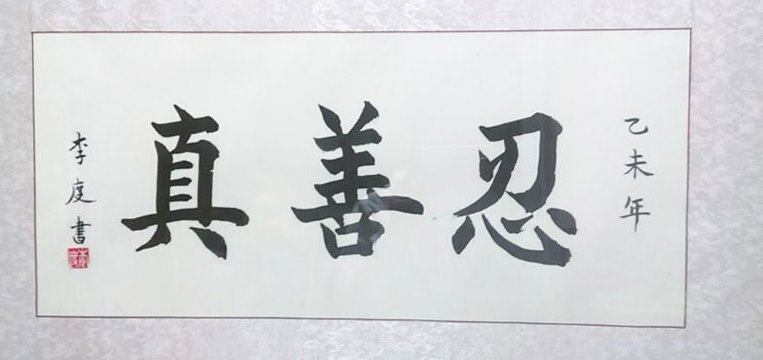 乙未年
忍善真
李庭書